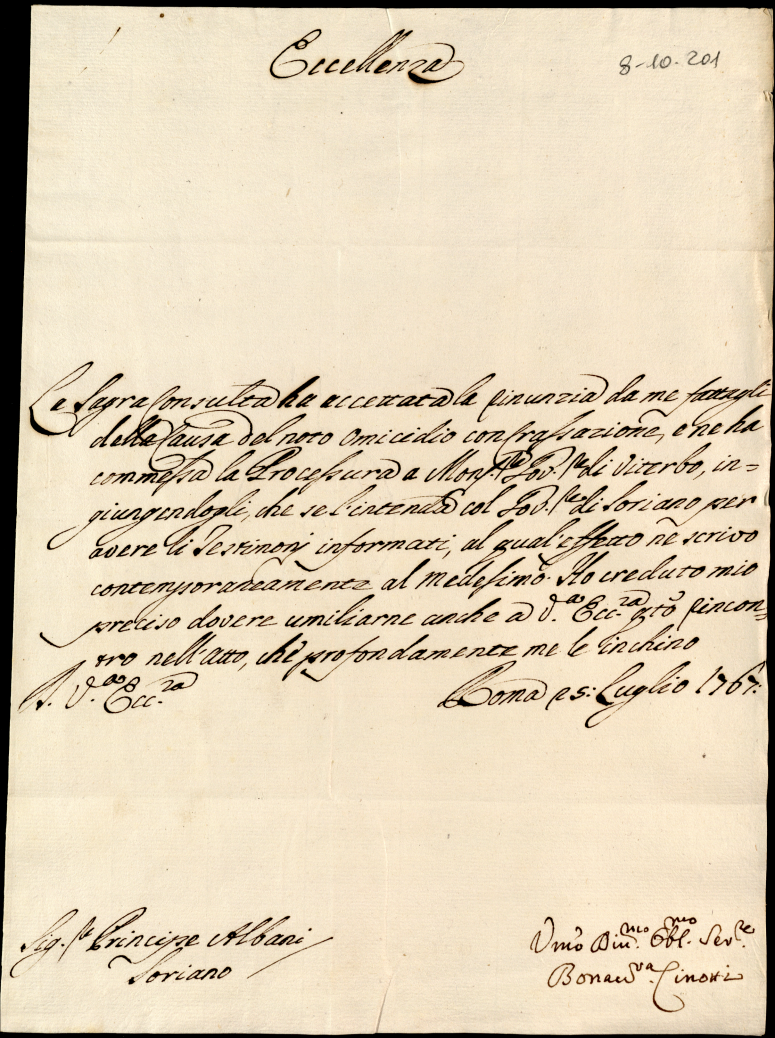 Eccellenza
8-10-201
La Sagra Consulta ha accettata la rinunzia da me fattagli
della Causa del noto omicidio con frassazione, e ne ha
commessa la Processura a Mons.re Gov.re di Viterbo, in=
giungendogli, che se l'intenda col Gov.re di Soriano per
avere li Testimonj informati, al qual'effetto ne scrivo
contemporaneamente al medesimo. Ho creduto mio
preciso dovere umiliarne anche a V.ra Ecc.za q̃to rincon=
tro nell'atto, che profondamente me le inchino
A. V.ra Ecc.za
Roma 25: Luglio 1767:
Sig.re Principe Albani
Soriano
Umo Div.mo Obl.mo Ser.re
Cinotti